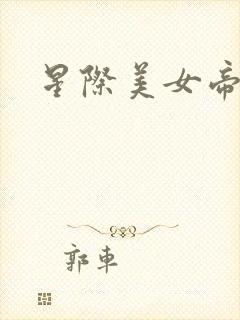 星際美女帝
郭車